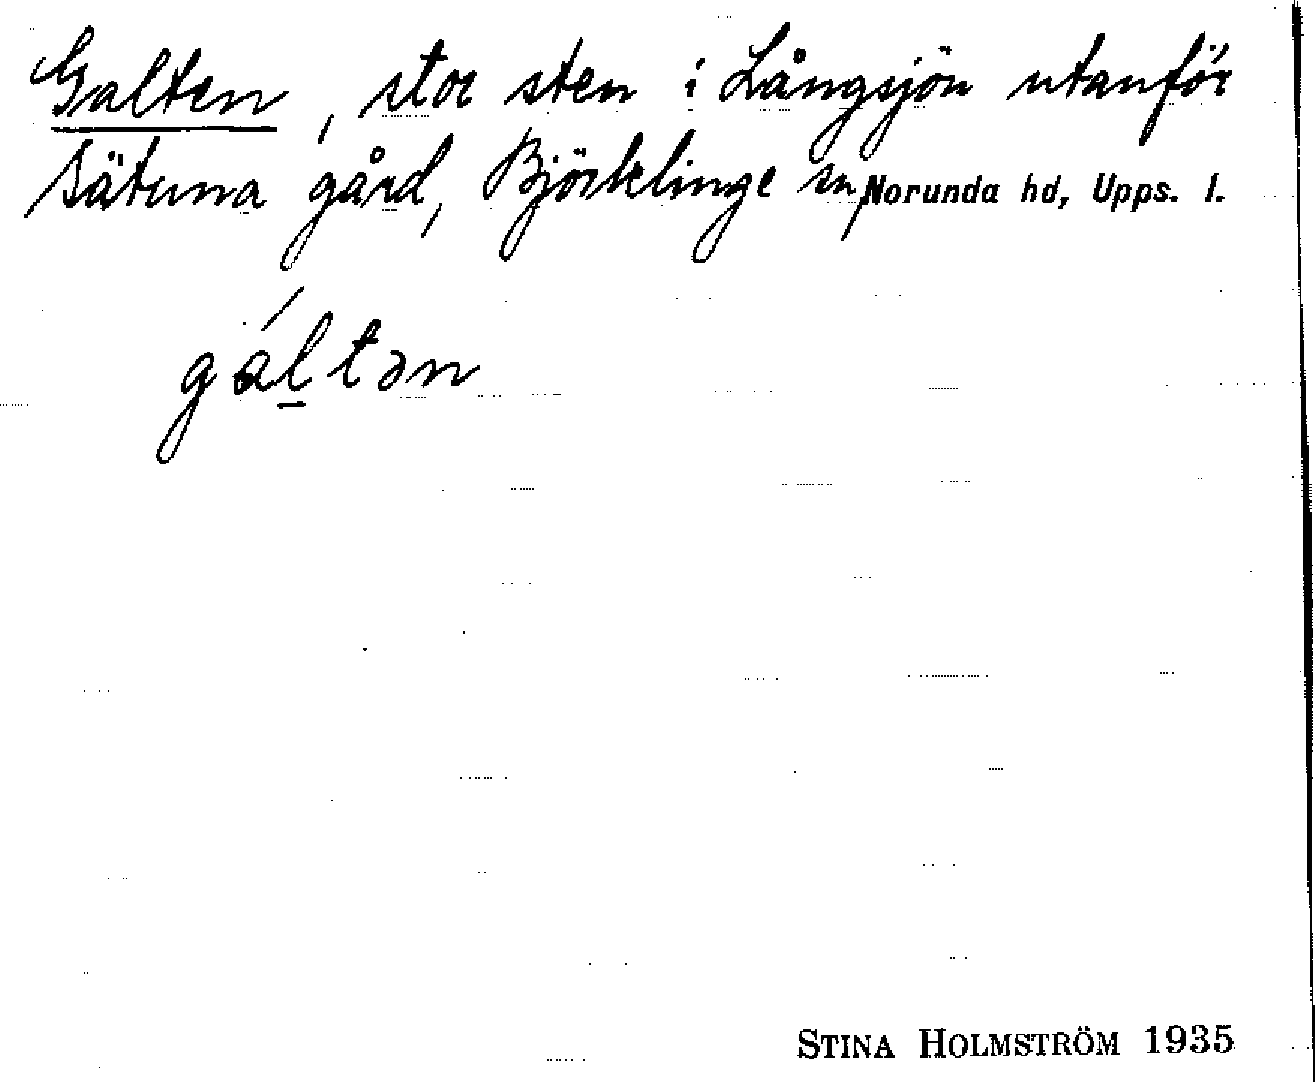 Galten, stor sten i Långsjön utanför
Sätuna gård, Björklinge sn, Norunda hd, Upps. l.
gáltən
STINA HOLMSTRÖM 1935